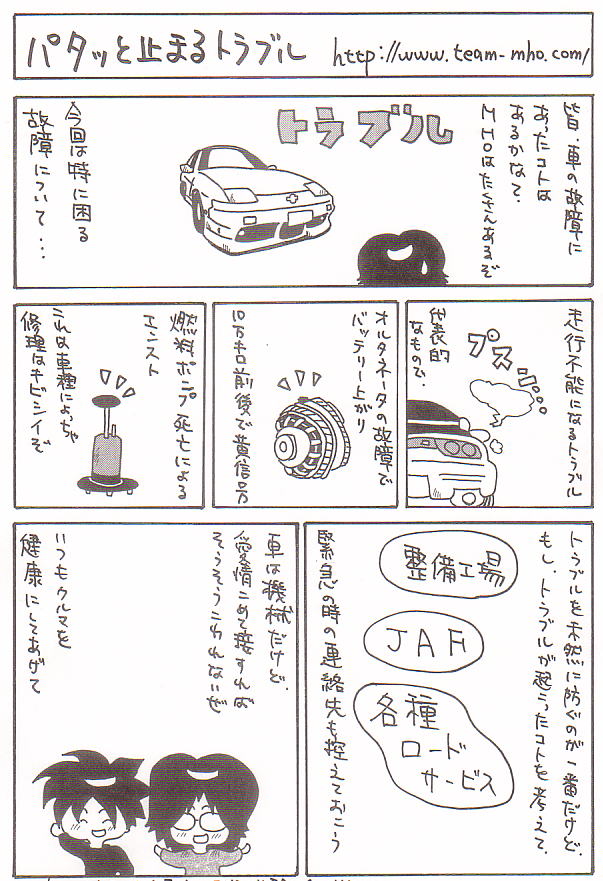 パタッと止まるトラブル http://www.team-mho.com/
皆、車の故障に
あったコトは
あるかな?
MHOはたくさんあるぞ
トラブル
今回は特に困る
故障について・・・
走行不能になるトラブル
代表的
なもので、
プスン・・・
オルタネータの故障で
バッテリー上がり
10万キロ前後で黄信号
燃料ポンプ死亡による
エンスト
これは車種によっちゃ
修理はキビシイぞ
トラブルを未然に防ぐのが一番だけど、
もし、トラブルが起こったコトを考えて、
整備工場
JAF
各種
ロード
サービス
緊急の時の連絡先も控えておこう
車は機械だけど、
愛情こめて接すれば
そうそうこわれないぜ
いつもクルマを
健康にしてあげて